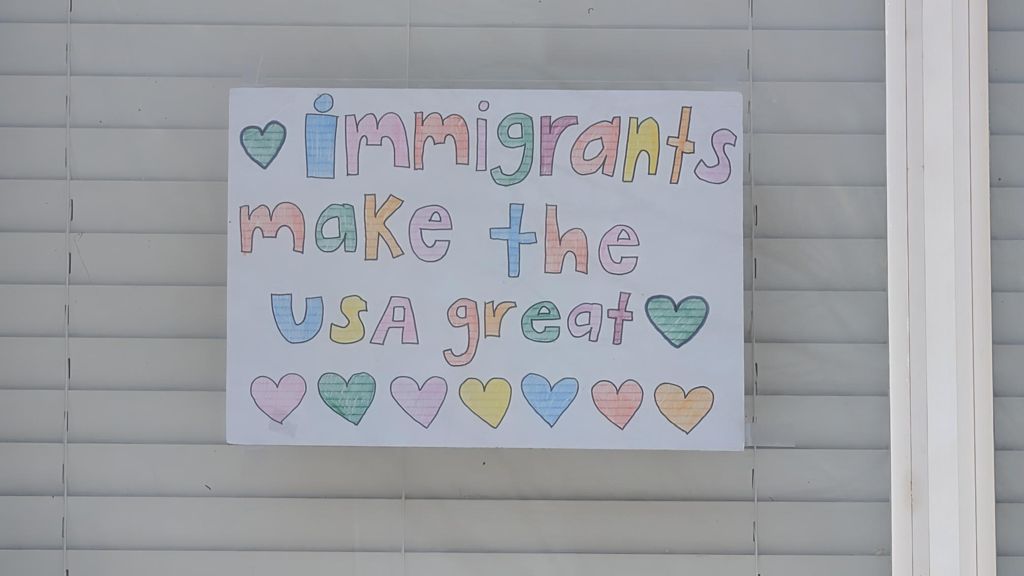 immigrants
make the
USA great